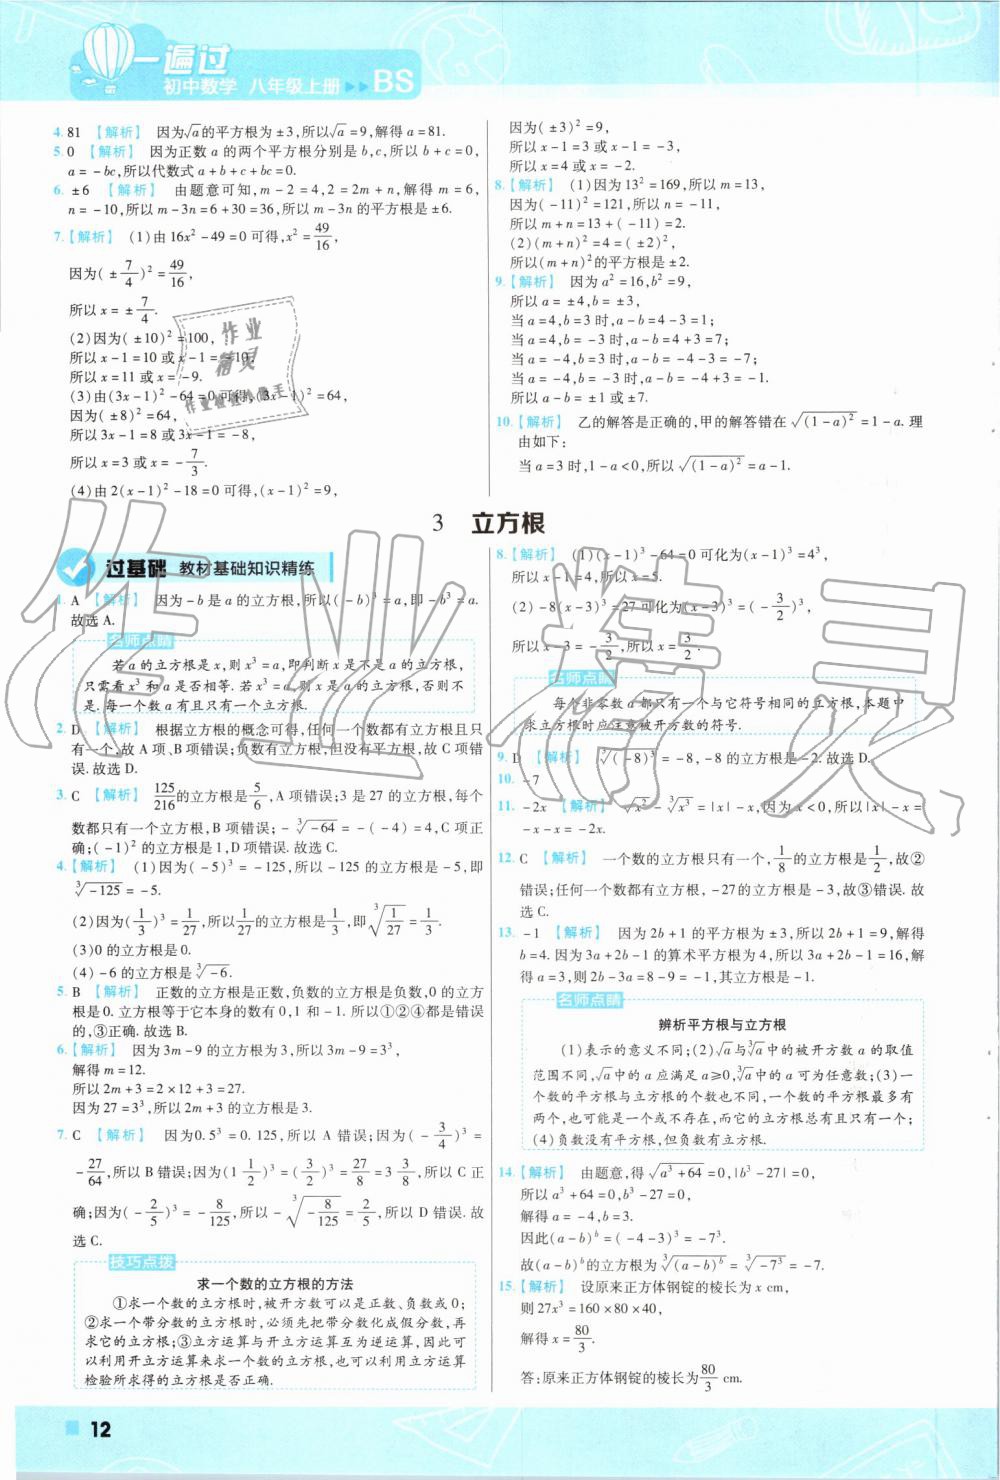 一遍过
初中数学 八年级上册 ▶▶ BS
4. 81 【解析】 因为√a的平方根为±3,所以√a=9,解得a=81.
5. 0 【解析】 因为正数a的两个平方根分别是b,c,所以b+c=0,
a=-bc,所以代数式a+b+c+bc=0.
6. ±6 【解析】 由题意可知,m-2=4,2=2m+n,解得m=6,
n=-10,所以m-3n=6+30=36,所以m-3n的平方根是±6.
7.【解析】 (1)由16x²-49=0可得,x²=49/16,
因为(±7/4)²=49/16,
所以x=±7/4.
(2)因为(±10)²=100,
所以x-1=10或x-1=-10,
所以x=11或x=-9.
(3)由(3x-1)²-64=0可得,(3x-1)²=64,
因为(±8)²=64,
所以3x-1=8或3x-1=-8,
所以x=3或x=-7/3.
(4)由2(x-1)²-18=0可得,(x-1)²=9,
因为(±3)²=9,
所以x-1=3或x-1=-3,
所以x=4或x=-2.
8.【解析】 (1)因为13²=169,所以m=13,
因为(-11)²=121,所以n=-11,
所以m+n=13+(-11)=2.
(2)(m+n)²=4=(±2)²,
所以(m+n)²的平方根是±2.
9.【解析】 因为a²=16,b²=9,
所以a=±4,b=±3,
当a=4,b=3时,a-b=4-3=1;
当a=4,b=-3时,a-b=4+3=7;
当a=-4,b=3时,a-b=-4-3=-7;
当a=-4,b=-3时,a-b=-4+3=-1.
所以a-b=±1或±7.
10.【解析】 乙的解答是正确的,甲的解答错在√(1-a)²=1-a.理
由如下:
当a=3时,1-a<0,所以√(1-a)²=a-1.
3 立方根
过基础 教材基础知识精练
1. A 【解析】 因为-b是a的立方根,所以(-b)³=a,即-b³=a.
故选A.
名师点睛
若a的立方根是x,则x³=a,即判断x是不是a的立方根,
只需看x³和a是否相等.若x³=a,则x是a的立方根,否则不
是.每一个数a有且只有一个立方根.
2. D 【解析】 根据立方根的概念可得,任何一个数都有立方根且只
有一个,故A项、B项错误;负数有立方根,但没有平方根,故C项错
误.故选D.
3. C 【解析】 125/216的立方根是5/6,A项错误;3是27的立方根,每个
数都只有一个立方根,B项错误;-∛-64=-(-4)=4,C项正
确;(-1)²的立方根是1,D项错误.故选C.
4.【解析】 (1)因为(-5)³=-125,所以-125的立方根是-5,即
∛-125=-5.
(2)因为(1/3)³=1/27,所以1/27的立方根是1/3,即∛1/27=1/3.
(3)0的立方根是0.
(4)-6的立方根是∛-6.
5. B 【解析】 正数的立方根是正数,负数的立方根是负数,0的立方
根是0.立方根等于它本身的数有0,1和-1.所以①②④都是错误
的,③正确.故选B.
6.【解析】 因为3m-9的立方根是3,所以3m-9=3³,
解得m=12.
所以2m+3=2×12+3=27.
因为27=3³,所以2m+3的立方根是3.
7. C 【解析】 因为0.5³=0.125,所以A错误;因为(-3/4)³=
-27/64,所以B错误;因为(1 1/2)³=(3/2)³=27/8=3 3/8,所以C正
确;因为(-2/5)³=-8/125,所以-∛-8/125=2/5,所以D错误.故
选C.
技巧点拨
求一个数的立方根的方法
①求一个数的立方根时,被开方数可以是正数、负数或0;
②求一个带分数的立方根时,必须先把带分数化成假分数,再
求它的立方根;③立方运算与开立方运算互为逆运算,因此可
以利用开立方运算来求一个数的立方根,也可以利用立方运算
检验所求得的立方根是否正确.
8.【解析】 (1)(x-1)³-64=0可化为(x-1)³=4³,
所以x-1=4,所以x=5.
(2)-8(x-3)³=27可化为(x-3)³=(-3/2)³,
所以x-3=-3/2,所以x=3/2.
名师点睛
每个非零数a都只有一个与它符号相同的立方根,本题中
求立方根时应注意被开方数的符号.
9. D 【解析】 ∛(-8)³=-8,-8的立方根是-2.故选D.
10. -7
11. -2x 【解析】 √x²-∛x³=|x|-x,因为x<0,所以|x|-x=
-x-x=-2x.
12. C 【解析】 一个数的立方根只有一个,1/8的立方根是1/2,故②
错误;任何一个数都有立方根,-27的立方根是-3,故③错误.故
选C.
13. -1 【解析】 因为2b+1的平方根为±3,所以2b+1=9,解得
b=4.因为3a+2b-1的算术平方根为4,所以3a+2b-1=16,解
得a=3,则2b-3a=8-9=-1,其立方根是-1.
名师点睛
辨析平方根与立方根
(1)表示的意义不同;(2)√a与∛a中的被开方数a的取值
范围不同,√a中的a应满足a≥0,∛a中的a可为任意数;(3)一
个数的平方根与立方根的个数也不同,一个数的平方根最多有
两个,也可能是一个或不存在,而它的立方根总有且只有一个;
(4)负数没有平方根,但负数有立方根.
14.【解析】 由题意,得√a³+64=0,|b³-27|=0,
所以a³+64=0,b³-27=0,
解得a=-4,b=3.
因此(a-b)ᵇ=(-4-3)³=-7³.
故(a-b)ᵇ的立方根为∛(a-b)ᵇ=∛-7³=-7.
15.【解析】 设原来正方体钢锭的棱长为x cm,
则27x³=160×80×40,
解得x=80/3.
答:原来正方体钢锭的棱长为80/3 cm.
12
作业精灵
作业
精灵